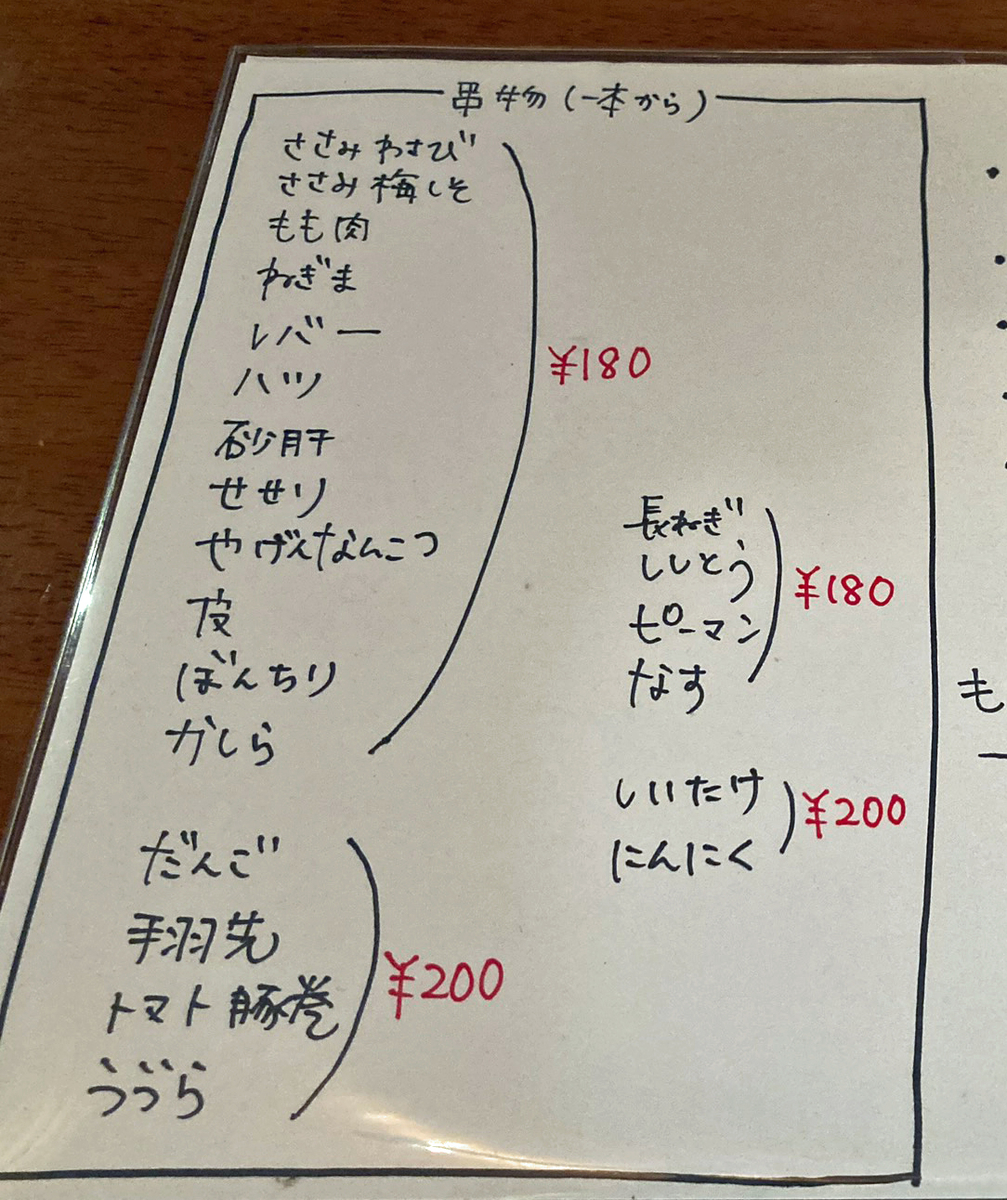 串物(一本から)
ささみわさび
ささみ梅しそ
もも肉
ねぎま
レバー
ハツ
砂肝
せせり
やげんなんこつ
皮
ぼんちり
かしら
¥180
だんご
手羽先
トマト豚巻
うづら
¥200
長ねぎ
ししとう
ピーマン
なす
¥180
しいたけ
にんにく
¥200
も